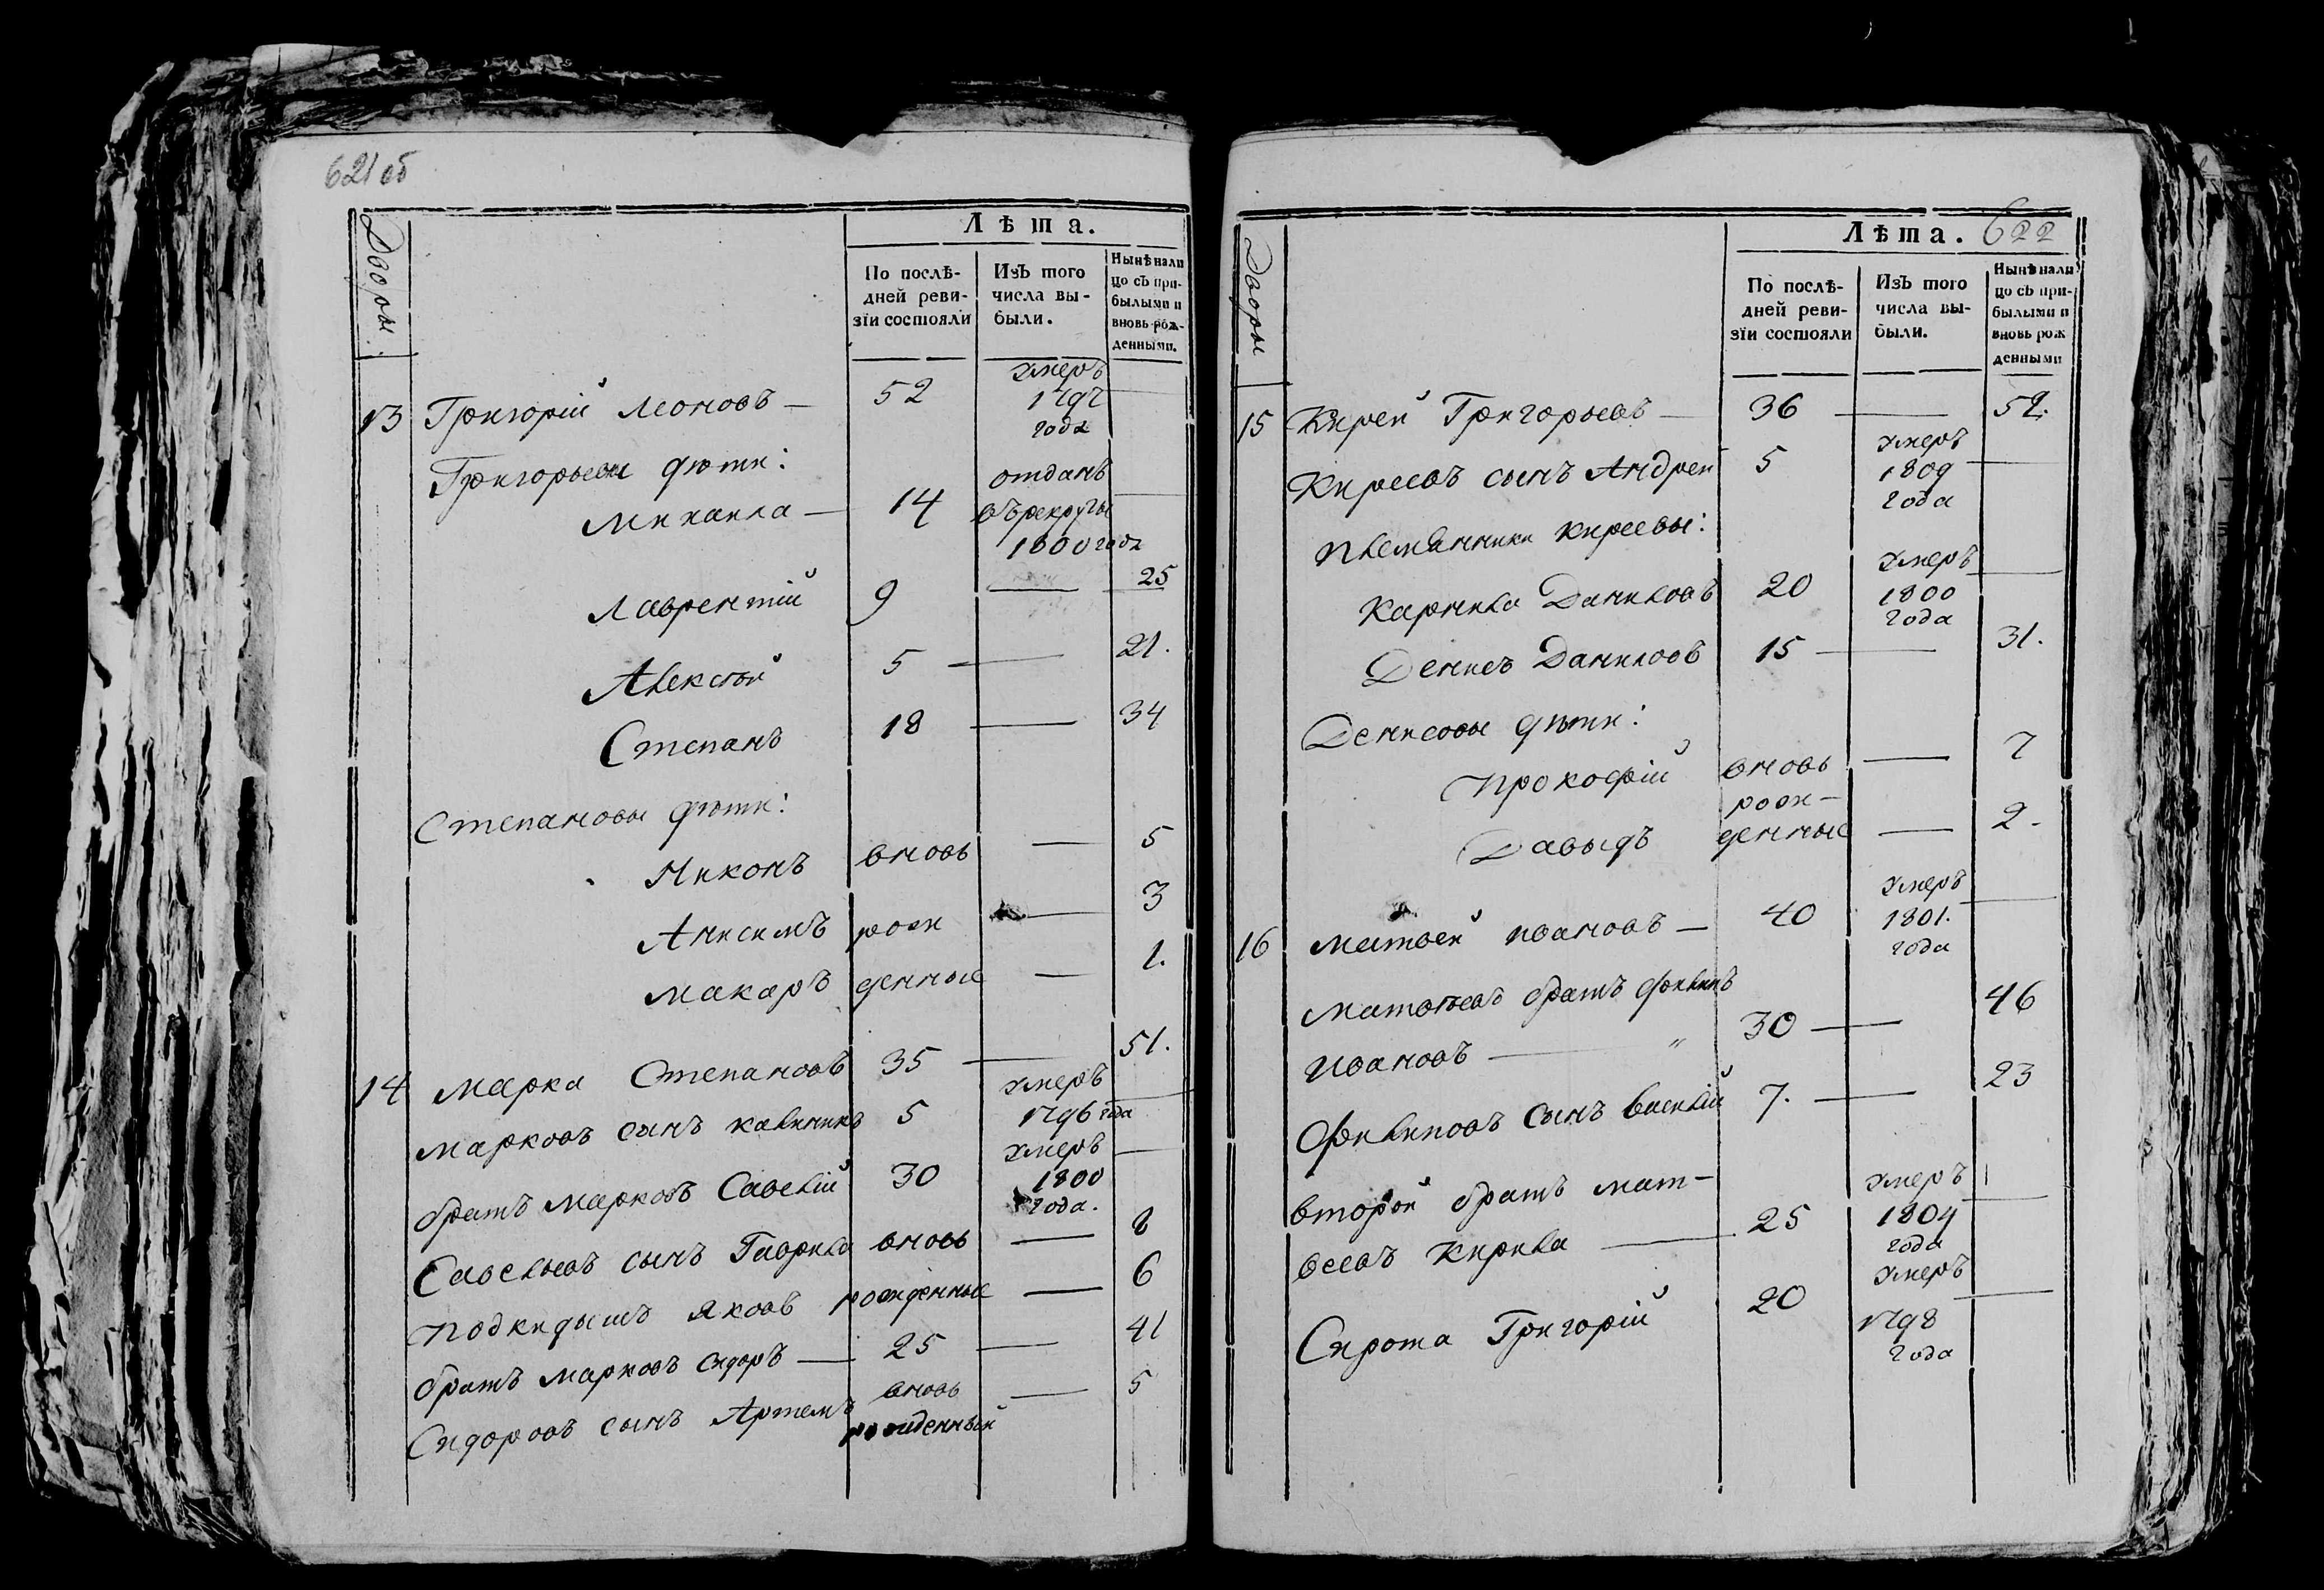 621 об
Дворы.
Лѣта.
По послѣ-
дней реви-
зіи состояли
Изъ того
числа вы-
были.
Нынѣ нали
цо съ при-
былыми и
вновь рож-
денными.
13 Григорій Леоновъ — 52 умеръ
1797
года
Григорьевы дѣти:
Михаила — 14 отданъ
въ рекруты
1800 года
Лаврентій 9 — 25
Алексѣй 5 — 21.
Степанъ 18 — 34
Степановы дѣти:
Никонъ вновь — 5
Анисимъ рож — 3
Макаръ денные — 1.
14 Марка Степановъ 35 — 51.
Марковъ сынъ Калиникъ 5 умеръ
1796 года
братъ Марковъ Савелій 30 умеръ
1800
года.
Савельевъ сынъ Гаврила вновь — 8
подкидышъ Яковъ рожденные — 6
братъ Марковъ Сидоръ — 25 — 41
Сидоровъ сынъ Артемъ вновь — 5
рожденный
622
Дворы
Лѣта.
По послѣ-
дней реви-
зіи состояли
Изъ того
числа вы-
были.
Нынѣ нали
цо съ при-
былыми и
вновь рож
денными
15 Кирей Григорьевъ — 36 — 52.
Киреевъ сынъ Андрей 5 умеръ
1809
года
племянники Киреевы:
Карнила Даниловъ 20 умеръ
1800
года
Денисъ Даниловъ 15 — 31.
Денисовы дѣти:
Прокофій вновь — 7
рож-
Давыдъ денные — 2.
16 Матвей Ивановъ — 40 умеръ
1801.
года
Матвѣевъ братъ Филипъ
Ивановъ — " 30 — 46
Филиповъ сынъ Василій 7. — 23
второй братъ Мат-
веевъ Кирила — 25 умеръ
1804
года
Сирота Григорій 20 умеръ
1798
года